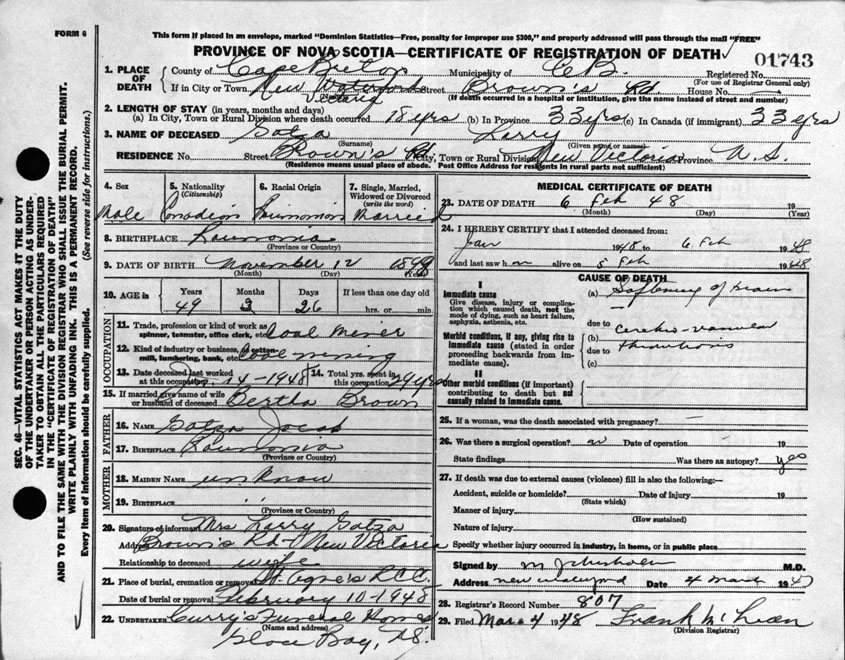 FORM 6
This form if placed in an envelope, marked "Dominion Statistics—Free, penalty for improper use $300," and properly addressed will pass through the mail "FREE"
PROVINCE OF NOVA SCOTIA—CERTIFICATE OF REGISTRATION OF DEATH
01743
1. PLACE OF DEATH
County of Cape Breton Municipality of C.B. Registered No.
(For use of Registrar General only)
If in City or Town New Waterford Street Brown's Rd. House No.
Victoria (If death occurred in a hospital or institution, give the name instead of street and number)
2. LENGTH OF STAY (in years, months and days)
(a) In City, Town or Rural Division where death occurred 18 yrs (b) In Province 33 yrs (c) In Canada (if immigrant) 33 yrs
3. NAME OF DECEASED Gatza Larry
(Surname) (Given name or names)
RESIDENCE No. Street Brown's Rd City, Town or Rural Division New Victoria Province N.S.
(Residence means usual place of abode. Post Office Address for residents in rural parts not sufficient)
4. Sex 5. Nationality (Citizenship) 6. Racial Origin 7. Single, Married, Widowed or Divorced (write the word)
Male Canadian Roumanian Married
8. BIRTHPLACE Roumania
(Province or Country)
9. DATE OF BIRTH November 12 1899
(Month) (Day) (Year)
10. AGE in Years Months Days If less than one day old
49 2 26 hrs. or min.
OCCUPATION
11. Trade, profession or kind of work as spinner, teamster, office clerk, etc. Coal Miner
12. Kind of industry or business, as cotton-mill, lumbering, bank, etc. Coal mining
13. Date deceased last worked at this occupation 14-1948 14. Total yrs. spent in this occupation 29 yrs
15. If married give name of wife or husband of deceased Bertha Brown
FATHER
16. NAME Gatza Jacob
17. BIRTHPLACE Roumania
(Province or Country)
MOTHER
18. MAIDEN NAME unknow
19. BIRTHPLACE " "
(Province or Country)
20. Signature of informant Mrs Larry Gatza
Address Brown's Rd New Victoria
Relationship to deceased wife
21. Place of burial, cremation or removal St. Agnes R.C.C.
Date of burial or removal February 10-1948
22. UNDERTAKER Curry's Funeral Home
(Name and address)
Glace Bay, N.S.
MEDICAL CERTIFICATE OF DEATH
23. DATE OF DEATH 6 Feb 48 19
(Month) (Day) (Year)
24. I HEREBY CERTIFY that I attended deceased from:
Jan 1948 to 6 Feb 1948
and last saw h m alive on 5 Feb 1948
CAUSE OF DEATH
I
Immediate cause
Give disease, injury or complication which caused death, not the mode of dying, such as heart failure, asphyxia, asthenia, etc.
(a) Softening of brain
due to
Morbid conditions, if any, giving rise to immediate cause (stated in order proceeding backwards from immediate cause).
(b) cerebro-vascular
thrombosis
due to
(c)
II
Other morbid conditions (if important) contributing to death but not causally related to immediate cause.
25. If a woman, was the death associated with pregnancy? —
26. Was there a surgical operation? no Date of operation — 19
State findings Was there an autopsy? yes
27. If death was due to external causes (violence) fill in also the following:—
Accident, suicide or homicide? Date of injury 19
(State which)
Manner of injury
(How sustained)
Nature of injury
Specify whether injury occurred in industry, in home, or in public place
Signed by M.D.
Address New Waterford Date 4 March 194
28. Registrar's Record Number 807
29. Filed Mar 4 1948 Frank McLean
(Division Registrar)
SEC. 46—VITAL STATISTICS ACT MAKES IT THE DUTY
OF THE UNDERTAKER OR PERSON ACTING AS UNDERTAKER TO OBTAIN ALL THE PARTICULARS REQUIRED
IN THE "CERTIFICATE OF REGISTRATION OF DEATH"
AND TO FILE THE SAME WITH THE DIVISION REGISTRAR WHO SHALL ISSUE THE BURIAL PERMIT.
WRITE PLAINLY WITH UNFADING INK. THIS IS A PERMANENT RECORD.
Every item of information should be carefully supplied. (See reverse side for instructions.)